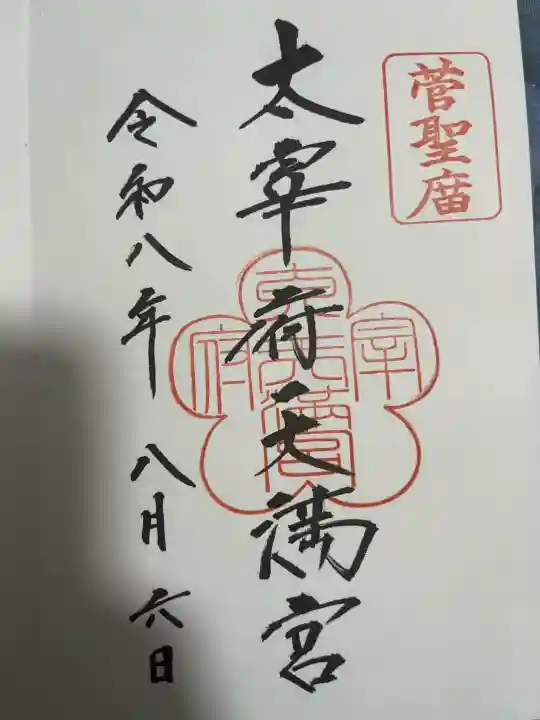 菅聖庿
太宰府天満宮
令和八年 八月六日